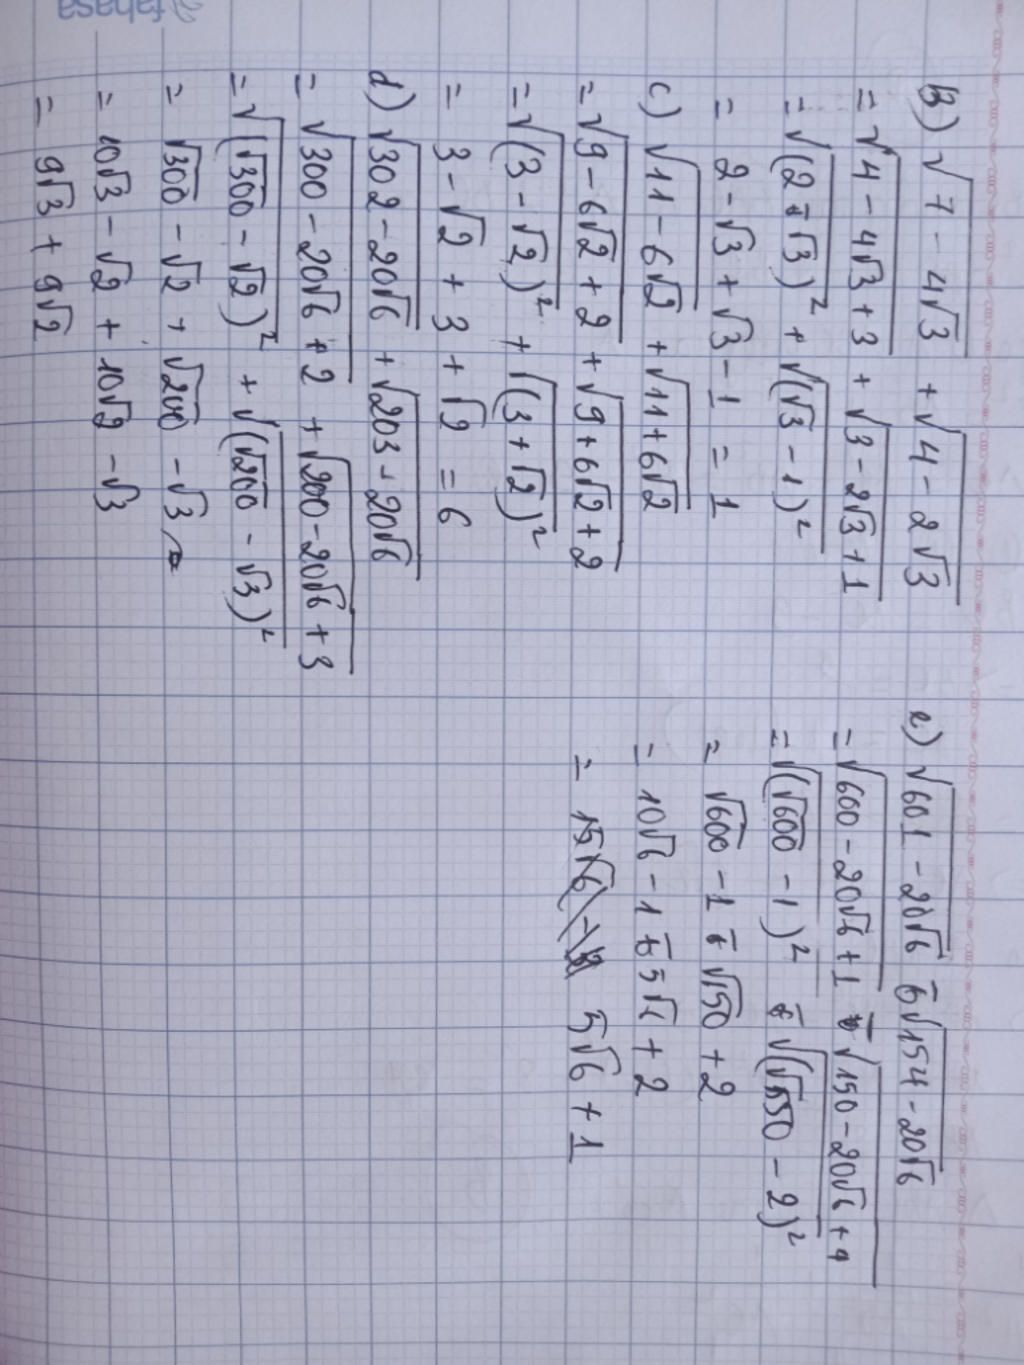 B) √(7 - 4√3) + √(4 - 2√3)
= √(4 - 4√3 + 3) + √(3 - 2√3 + 1)
= √((2 - √3)²) + √((√3 - 1)²)
= 2 - √3 + √3 - 1 = 1
c) √(11 - 6√2) + √(11 + 6√2)
= √(9 - 6√2 + 2) + √(9 + 6√2 + 2)
= √((3 - √2)²) + √((3 + √2)²)
= 3 - √2 + 3 + √2 = 6
d) √(302 - 20√6) + √(203 - 20√6)
= √(300 - 20√6 + 2) + √(200 - 20√6 + 3)
= √((√300 - √2)²) + √((√200 - √3)²)
= √300 - √2 + √200 - √3
= 10√3 - √2 + 10√2 - √3
= 9√3 + 9√2
e) √(601 - 20√6) - √(154 - 20√6)
= √(600 - 20√6 + 1) - √(150 - 20√6 + 4)
= √((√600 - 1)²) - √((√150 - 2)²)
= √600 - 1 - √150 + 2
= 10√6 - 1 - 5√6 + 2
= 5√6 + 1
fahasa